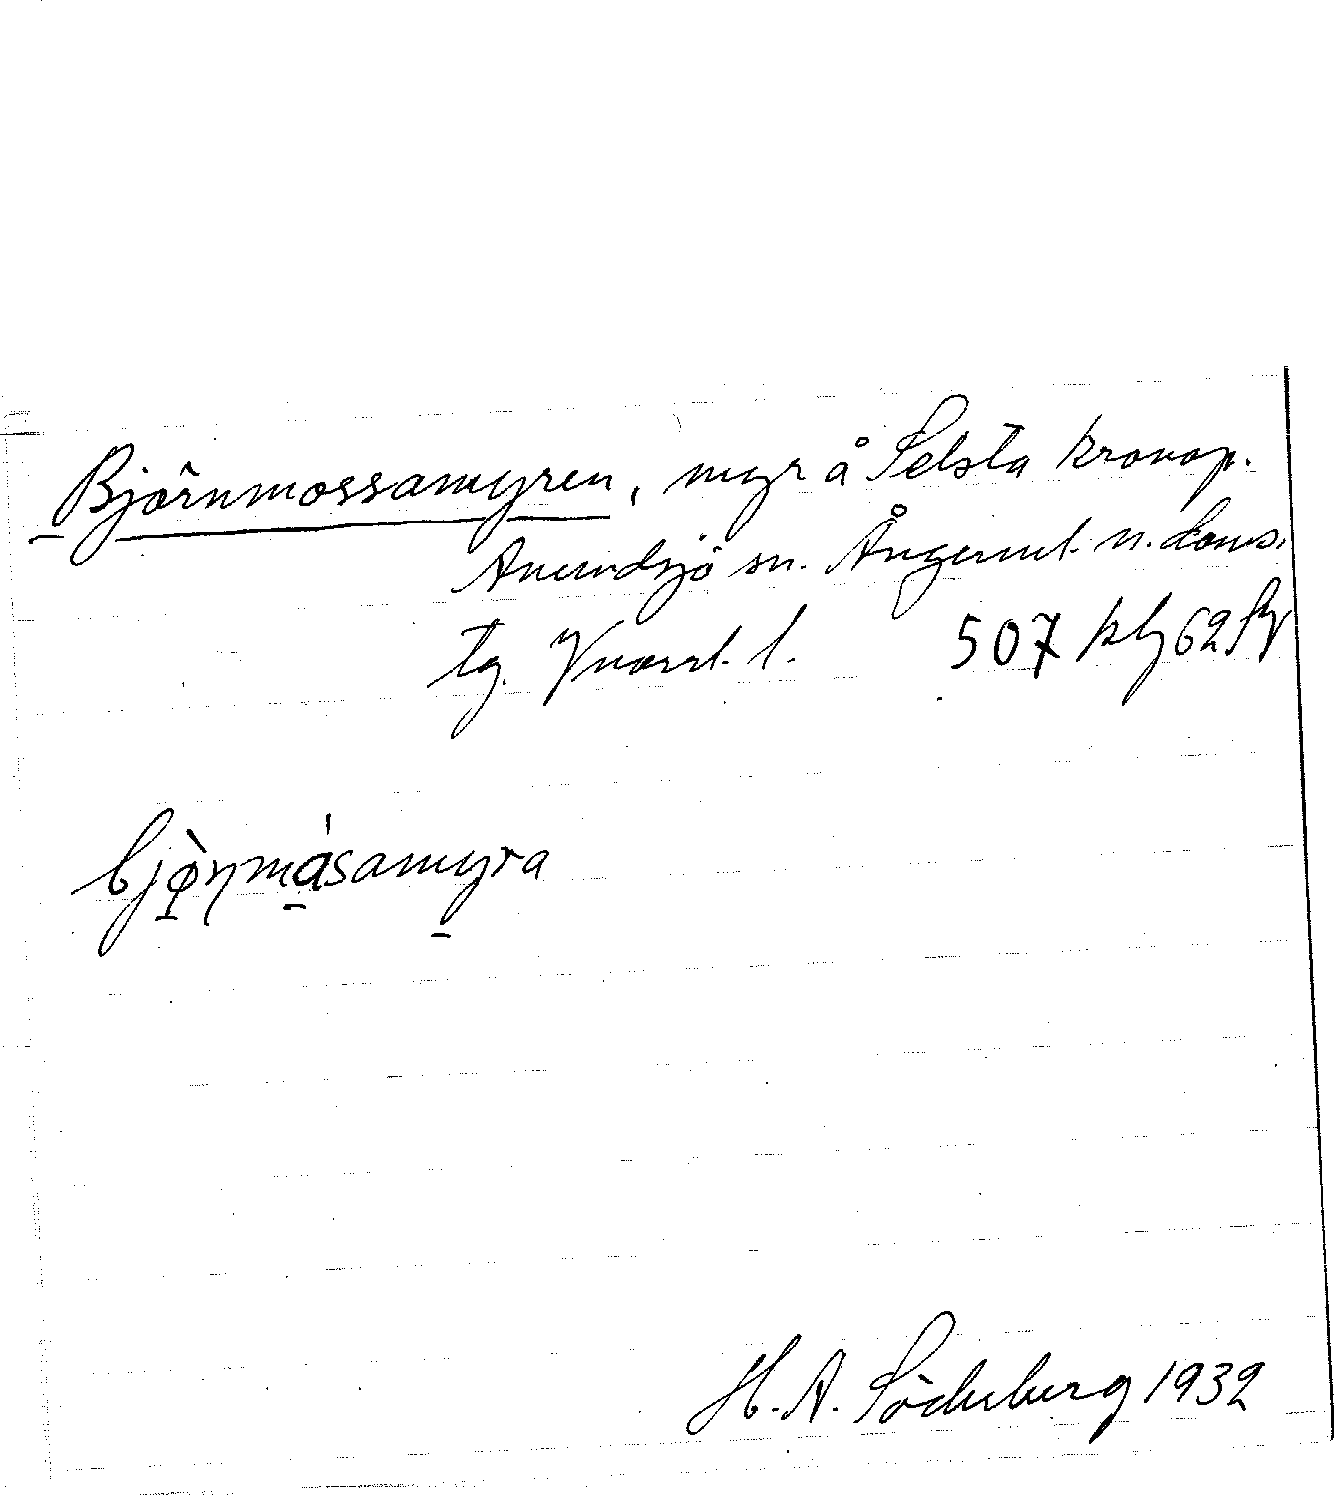 Björnmossamyren, myr å Selsta kronop.
Anundsjö sn. Ångerml. n. doms.
tg. Vnorrl. l. 507
bjö̀ṇmásamyra
H. A. Söderberg 1932